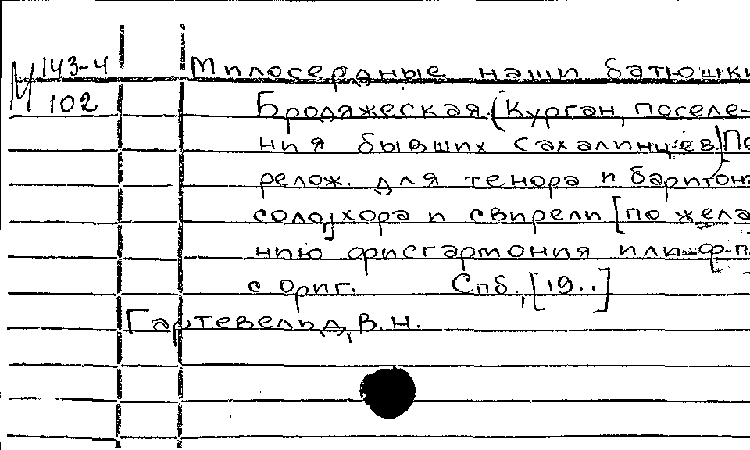 М 143-4
102
Милосердные наши батюшки
Бродяжеская (Курган, поселе-
ния бывших сахалинцев) Пе
релож. для тенора и баритона
соло, хора и свирели [по жела
нию фисгармония или ф-п
с ориг. Спб., [19..]
Гартевельд, В. Н.